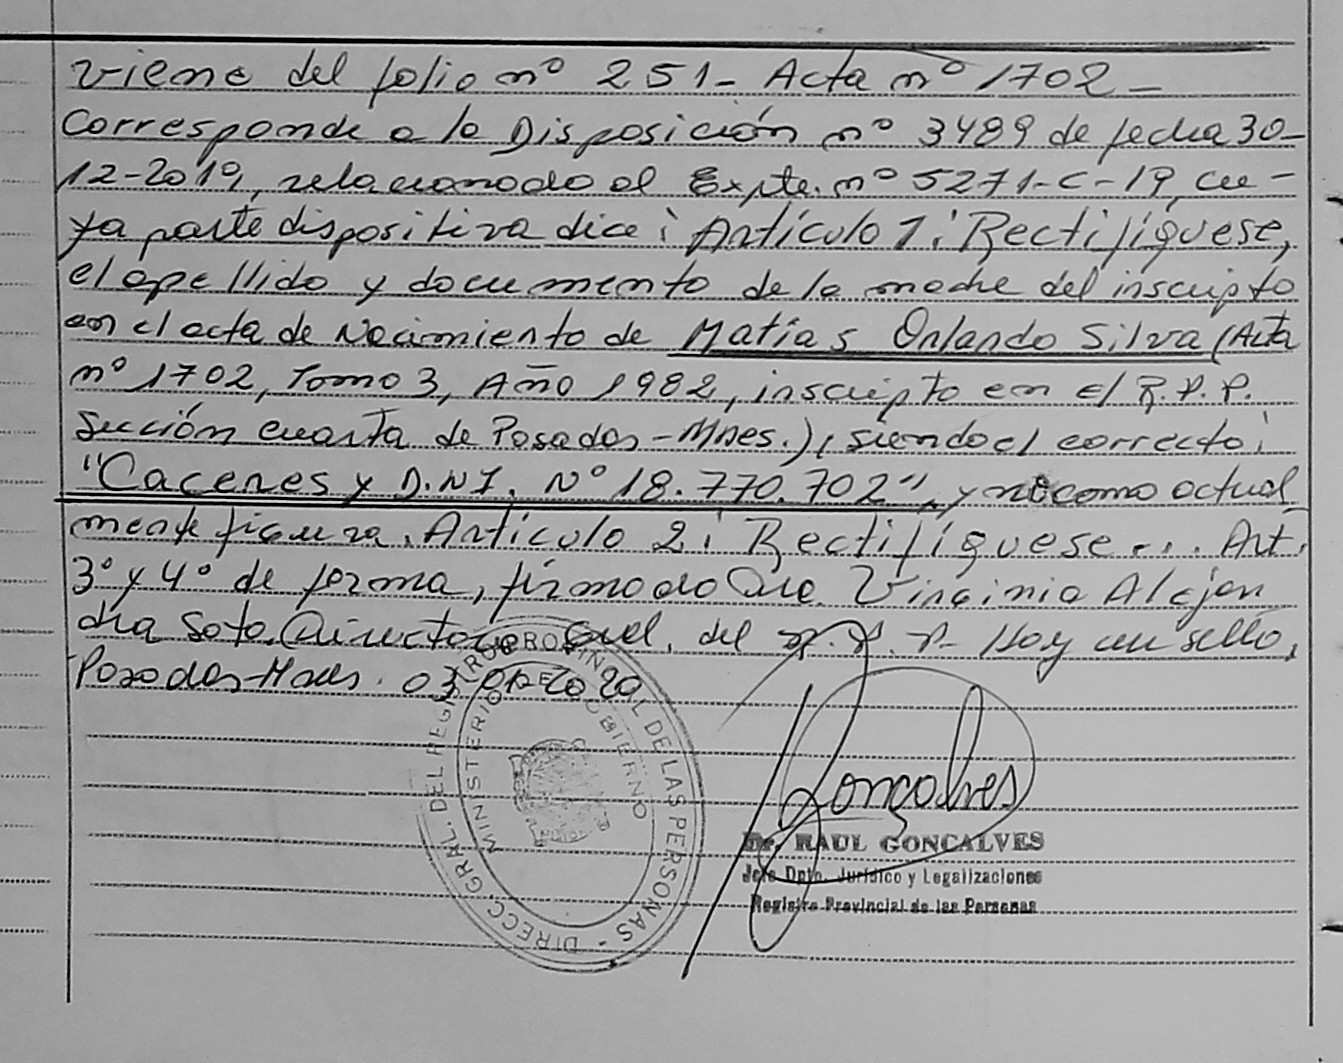 viene del folio nº 251- Acta nº 1702-
Corresponde a la Disposición nº 3489 de fecha 30-
12-2019, relacionado al Expte. nº 5271-C-19, cu-
ya parte dispositiva dice: Artículo 1: Rectifíquese,
el apellido y documento de la madre del inscripto
en el acta de Nacimiento de Matías Orlando Silva (Acta
nº 1702, Tomo 3, Año 1982, inscripto en el R.P.P.
Sección cuarta de Posadas-Mnes.), siendo el correcto:
"Caceres y D.N.I. Nº 18.770.702", y no como actual
mente figura. Artículo 2: Rectifíquese... Art.
3º y 4º de forma, firmado Dra. Virginia Alejan
dra Soto. Directora Gral. del R.P.P. Hay un sello,
Posadas-Mnes. 03 2020
DIRECC. GRAL. DEL REGISTRO PROVINCIAL DE LAS PERSONAS -
MINISTERIO DE GOBIERNO
Goncalves
Dr. RAUL GONCALVES
Jefe Dpto. Jurídico y Legalizaciones
Registro Provincial de las Personas